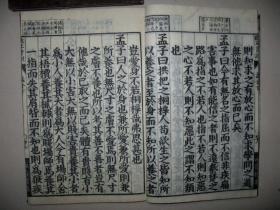 則知求之有放心而不知求學問之道
無他求其放心而已矣
孟子曰今有無名之指屈而不信非疾痛
害事也如有能信之者則不遠秦楚之
路為指之不若人也指不若人則知惡
之心不若人則不知惡此之謂不知類
也
孟子曰拱把之桐梓人苟欲生之皆知所
以養之者至於身而不知所以養之者
豈愛身不若桐梓哉弗思甚也
孟子曰人之於身也兼所愛兼所愛則兼
所養也無尺寸之膚不愛焉則無尺寸
之膚不養也所以考其善不善者豈有
他哉於己取之而已矣體有貴賤有小
大無以小害大無以賤害貴養其小者
為小人養其大者為大人今有場師舍
其梧檟養其樲棘則為賤場師焉養其
一指而失其肩背而不知也則為狼疾